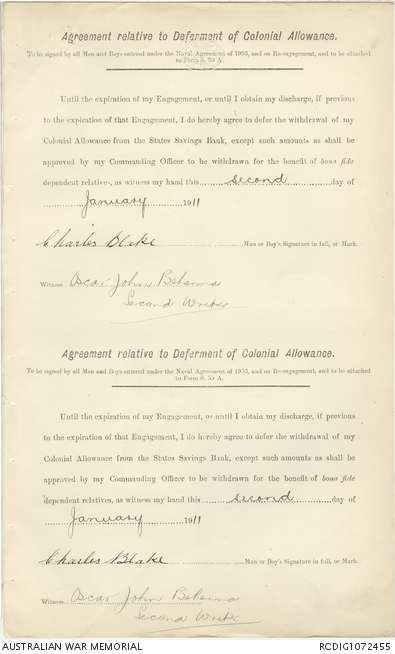 Agreement relative to Deferment of Colonial Allowance.
To be signed by all Men and Boys entered under the Naval Agreement of 1903, and on Re-engagement, and to be attached
to Form S. 55 A.
Until the expiration of my Engagement, or until I obtain my discharge, if previous
to the expiration of that Engagement, I do hereby agree to defer the withdrawal of my
Colonial Allowance from the States Savings Bank, except such amounts as shall be
approved by my Commanding Officer to be withdrawn for the benefit of bona fide
dependent relatives, as witness my hand this second day of
January 1911
Charles Blake Man or Boy's Signature in full, or Mark.
Witness Oscar John
Second Writer
Agreement relative to Deferment of Colonial Allowance.
To be signed by all Men and Boys entered under the Naval Agreement of 1903, and on Re-engagement, and to be attached
to Form S. 55 A.
Until the expiration of my Engagement, or until I obtain my discharge, if previous
to the expiration of that Engagement, I do hereby agree to defer the withdrawal of my
Colonial Allowance from the States Savings Bank, except such amounts as shall be
approved by my Commanding Officer to be withdrawn for the benefit of bona fide
dependent relatives, as witness my hand this second day of
January 1911
Charles Blake Man or Boy's Signature in full, or Mark.
Witness Oscar John
Second Writer
AUSTRALIAN WAR MEMORIAL RCDIG1072455